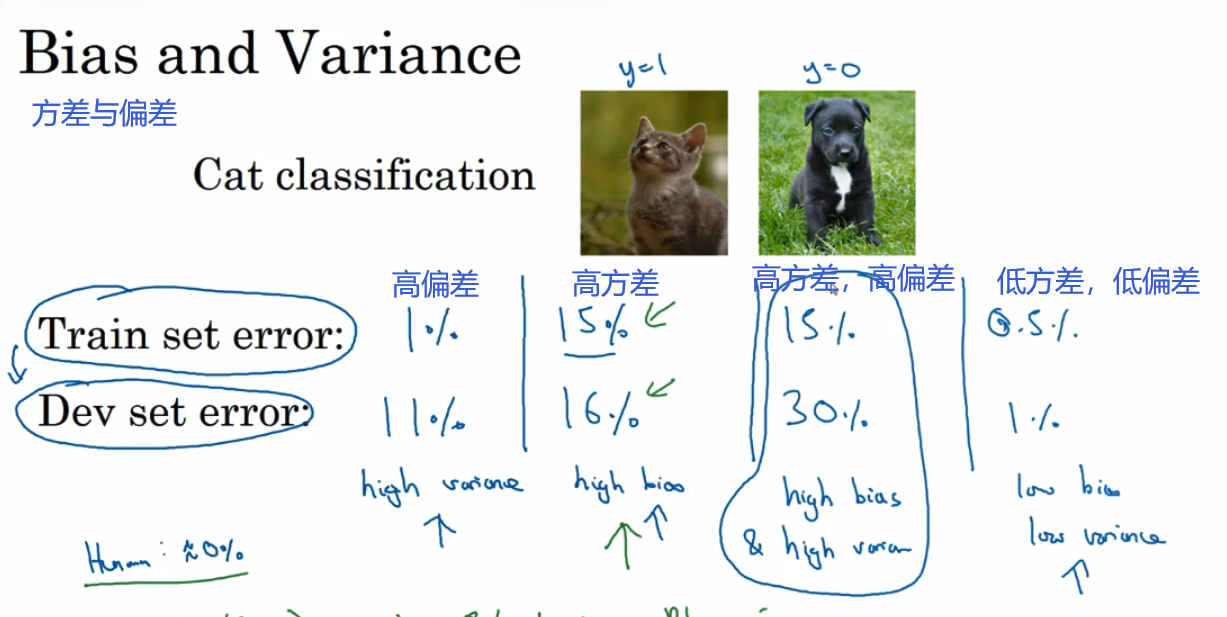 Bias and Variance
方差与偏差
y=1 y=0
Cat classification
高偏差 高方差 高方差，高偏差 低方差，低偏差
Train set error: 1% 15% 15% 0.5%
Dev set error: 11% 16% 30% 1%
high variance high bias high bias low bias
& high low variance
Human: ≈0%